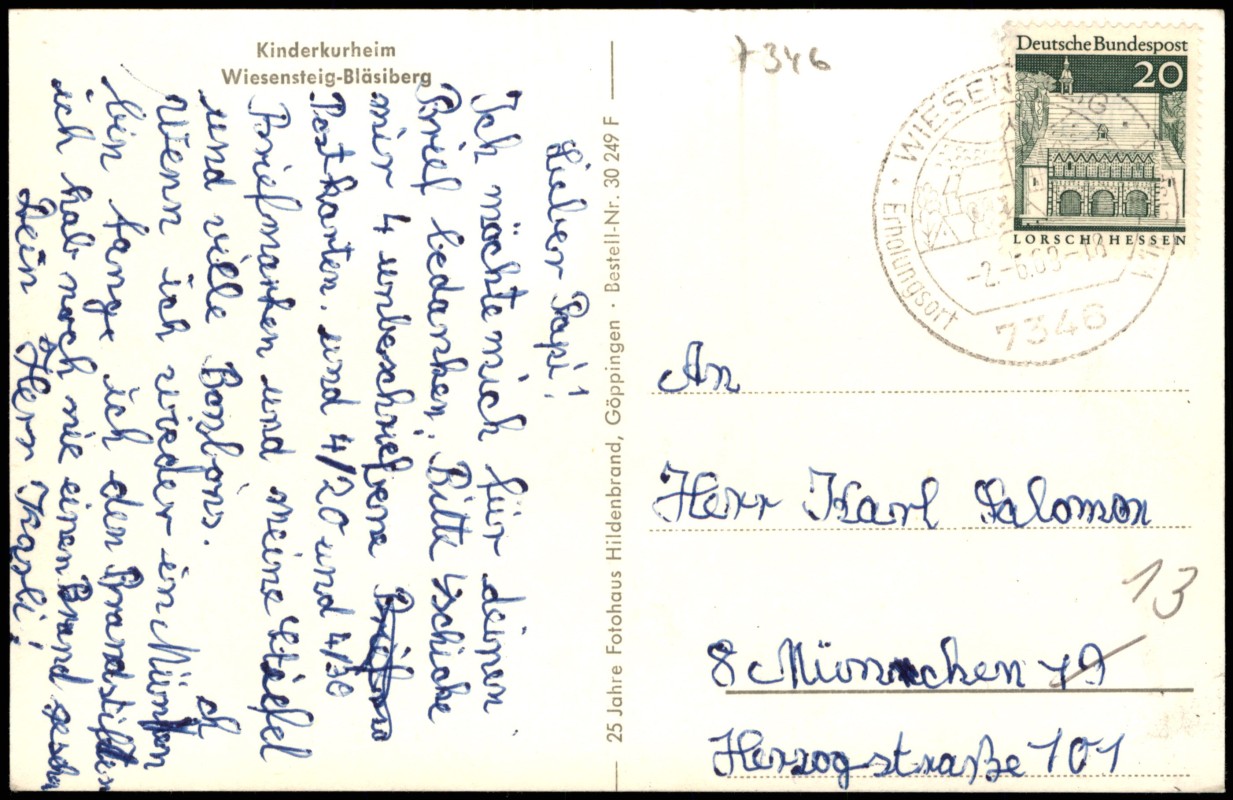 Kinderkurheim
Wiesensteig-Bläsiberg
Lieber Papi!
Ich möchte mich für deinen
Brief bedanken. Bitte schicke
mir 4 unbeschriebene
Postkarten. und 4/20 und 4/30
Briefmarken und meine Stiefel
und ville Bonbons.
Wenn ich wieder in München
bin fange ich den Brandstiften
ich hab noch nie einen Brand gesehn
Dein Herr Karli!
25 Jahre Fotohaus Hildenbrand, Göppingen · Bestell-Nr. 30 249 F
7346
Deutsche Bundespost
20
LORSCH/HESSEN
WIESENSTEIG
Erholungsort
-2.-6.69-18
7346
An
Herr Karl Salomon
13
8 München 19
Herzogstraße 101